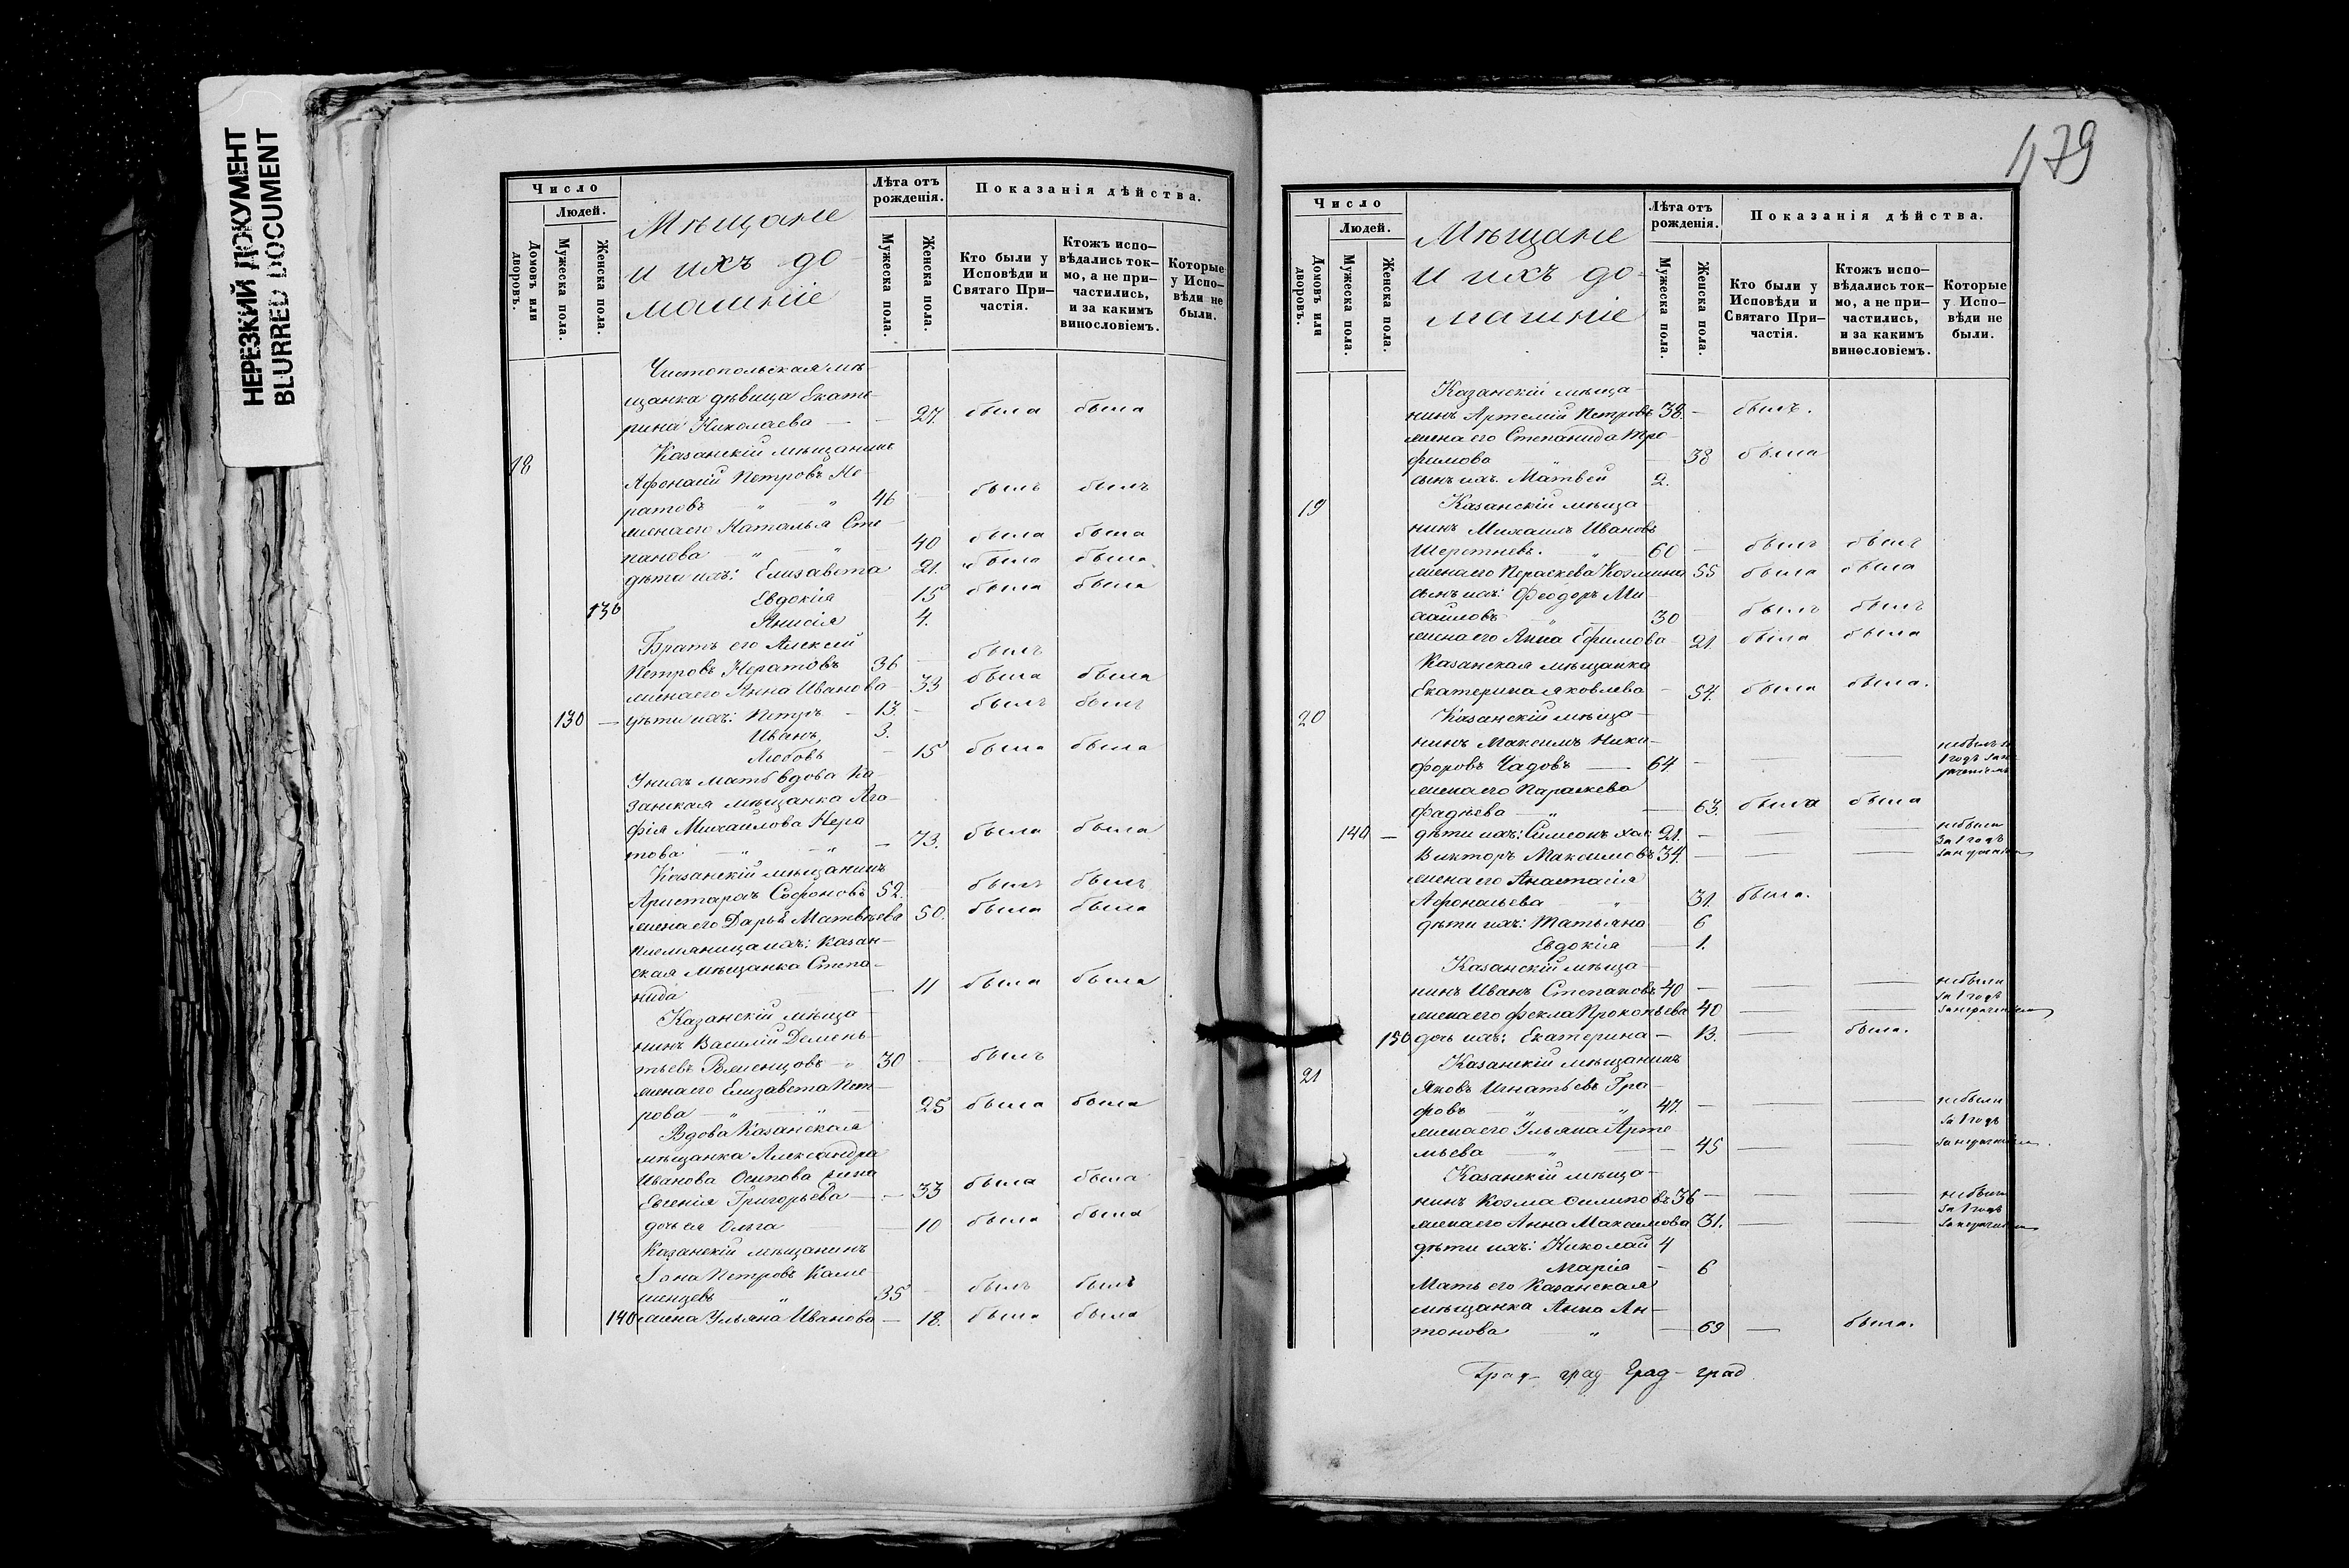 НЕРЕЗКИЙ ДОКУМЕНТ
BLURRED DOCUMENT
Число
Людей.
Домовъ или дворовъ.
Мужеска пола.
Женска пола.
Мѣщане
и ихъ до-
машніе
Лѣта отъ рожденія.
Мужеска пола.
Женска пола.
Показанія дѣйства.
Кто были у Исповѣди и Святаго При-частія.
Ктожъ испо-вѣдались ток-мо, а не при-частились, и за какимъ винословіемъ.
Которые у Испо-вѣди не были.
Чистопольская мѣ-
щанка дѣвица Екате-
рина Николаева — 27. была была
18 Казанскій мѣщанинъ
Афонасій Петровъ Не-
ратовъ 46 былъ былъ
жена его Наталья Сте-
панова 40 была была
дѣти ихъ: Елизавета 21. была была
Евдокія 15 была была
136 Анисія 4.
Братъ его Алексей
Петровъ Нератовъ 36 — былъ
жена его Анна Иванова 33 была была
130 — дѣти ихъ: Петръ — 13. — былъ былъ
Иванъ 3.
Любовь — 15 была была
У нихъ мать вдова Ка-
занская мѣщанка Ага-
фія Михаилова Нера
това — 73. была была
Казанскій мѣщанинъ
Аристархъ Софоновъ 52. былъ былъ
жена его Дарья Матвѣева 50. была была
племяница ихъ: Казан-
ская мѣщанка Степа-
нида — 11 была была
Казанскій мѣща-
нинъ Василій Демень-
тьевъ 30 — былъ
жена его Елизавета Пет-
рова 25 была была
Вдова Казанская
мѣщанка Александра
Иванова Осипова
Евгенія Григорьева — 33 была была
дочь ея Ольга — 10 была была
Казанскій мѣщанинъ
Іона Петровъ Каме-
шенцевъ 35 — былъ былъ
140 жена Ульяна Иванова — 18. была была
179
Число
Людей.
Домовъ или дворовъ.
Мужеска пола.
Женска пола.
Мѣщане
и ихъ до-
машніе
Лѣта отъ рожденія.
Мужеска пола.
Женска пола.
Показанія дѣйства.
Кто были у Исповѣди и Святаго При-частія.
Ктожъ испо-вѣдались ток-мо, а не при-частились, и за какимъ винословіемъ.
Которые у Испо-вѣди не были.
Казанскій мѣща-
нинъ Артемій Петровъ 38. — былъ.
жена его Степанида Тро-
фимова 38 была
сынъ ихъ Матвей 2.
19 Казанскій мѣща-
нинъ Михаилъ Ивановъ
Шерстневъ. 60 — былъ былъ
жена его Пераскева Козмина 55 была была
сынъ ихъ: Феодоръ Ми-
хаиловъ 30 былъ былъ
жена его Анна Ефимова 21. была была
Казанская мѣщанка
Екатерина Яковлева — 54. была была.
20 Казанскій мѣща-
нинъ Максимъ Ники-
форовъ Чадовъ — 64. — — — небылъ за
1 годъ
жена его Параскева
Фадѣева — 63. была была
140 — дѣти ихъ: Симеонъ 21. — — — небыли
Викторъ Максимовъ 34. — — — за 1 годъ
жена его Анастасія
Афонасьева 31. была.
дѣти ихъ: Татьяна 6
Евдокія — 1.
Казанскій мѣща-
нинъ Иванъ Степановъ 40 — — — небыли
за 1 годъ
жена его Фекла Прокопьева 40 — —
150 дочь ихъ: Екатерина — 13. — была.
21 Казанскій мѣщанинъ
Яковъ Игнатьевъ Гра-
фовъ 47. — — — небыли
за 1 годъ
жена его Ульяна Арте-
мьева — 45 — —
Казанскій мѣща-
нинъ Козма 36 — — — небыли
за 1 годъ
жена его Анна Максимова 31. — —
дѣти ихъ: Николай 4
Марія — 6
Мать его Казанская
мѣщанка Анна Ан-
тонова — 69 — была.
Град- град- Град- град